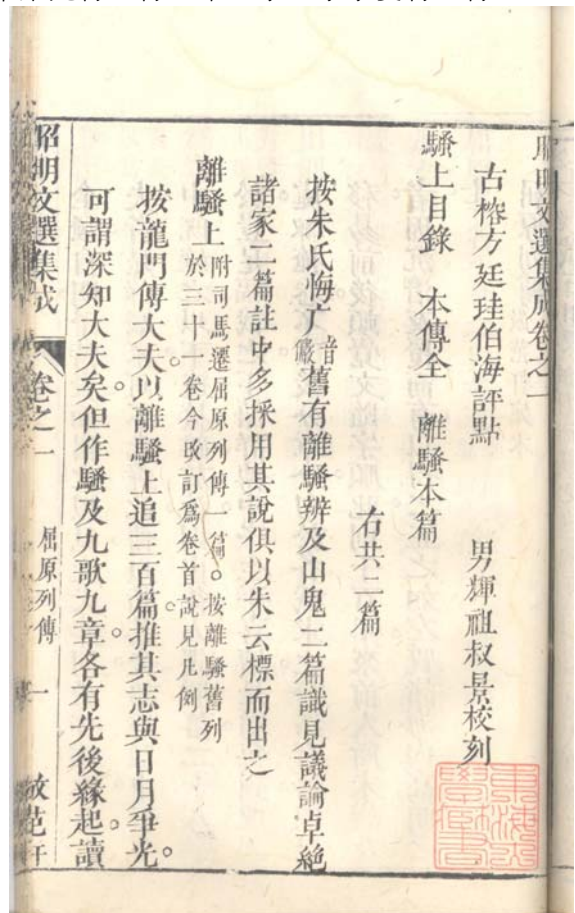 昭明文選集成卷之一
古榕方廷珪伯海評點　男輝祖叔景校刻
騷上目錄　本傳全　離騷本篇
右共二篇
按朱氏悔广音嚴舊有離騷辨及山鬼二篇識見議論卓絶
諸家二篇註中多採用其說俱以朱云標而出之
離騷上附司馬遷屈原列傳一篇。按離騷舊列
於三十一卷今改訂爲卷首說見凡例
按龍門傳大夫以離騷上追三百篇推其志與日月爭光。
可謂深知大夫矣。但作騷及九歌九章。各有先後緣起。讀
昭明文選集成　卷之一　屈原列傳　一